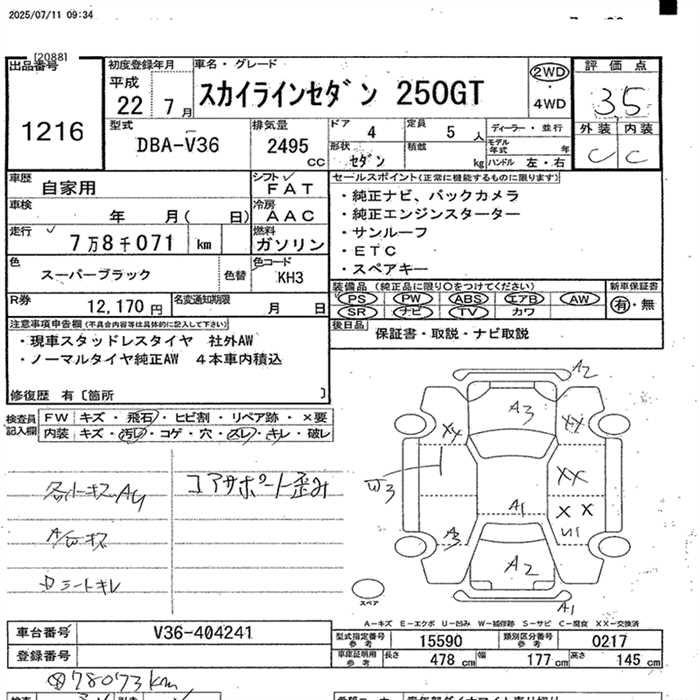 2025/07/11 09:34
[2088]
出品番号
1216
初度登録年月
平成
22 7月
車名・グレード
スカイラインセダン 250GT
2WD
4WD
評価点
3.5
外装 内装
C C
型式
DBA-V36
排気量
2495
CC
ドア
4
定員
5人
形状
セダン
積載
kg
ディーラー・並行
モデル年式 年
ハンドル 左・右
車歴
自家用
シフト
FAT
車検
年 月( 日)
冷房
AAC
走行
7万8千071 km
燃料
ガソリン
色
スーパーブラック
色替
色コード
KH3
R券
12,170円
名変通知期限
月 日
セールスポイント(正常に機能するものに限ります)
・純正ナビ、バックカメラ
・純正エンジンスターター
・サンルーフ
・ETC
・スペアキー
装備品 (純正品に限り○をつけてください)
PS PW ABS エアB AW
SR ナビ TV カワ
新車保証書
有・無
後日品
保証書・取説・ナビ取説
注意事項申告欄(不具合内容等は具体的に記入して下さい)
・現車スタッドレスタイヤ 社外AW
・ノーマルタイヤ純正AW 4本車内積込
修復歴 有〔箇所 〕
検査員記入欄
FW キズ・飛石・ヒビ割・リペア跡・×要
内装 キズ・汚レ・コゲ・穴・スレ・キレ・破レ
コアサポート歪み
A2
A3
XX
XX
W3
XX
A1
X X
A3
U1
A2
A1
スペア
A-キズ E-エクボ U-凹み W-補修跡 S-サビ C-腐食 XX-交換済
車台番号
V36-404241
登録番号
型式指定番号 参考
15590
類別区分番号 参考
0217
車庫証明用 参考
長さ 478 cm
幅 177 cm
高さ 145 cm
78073km